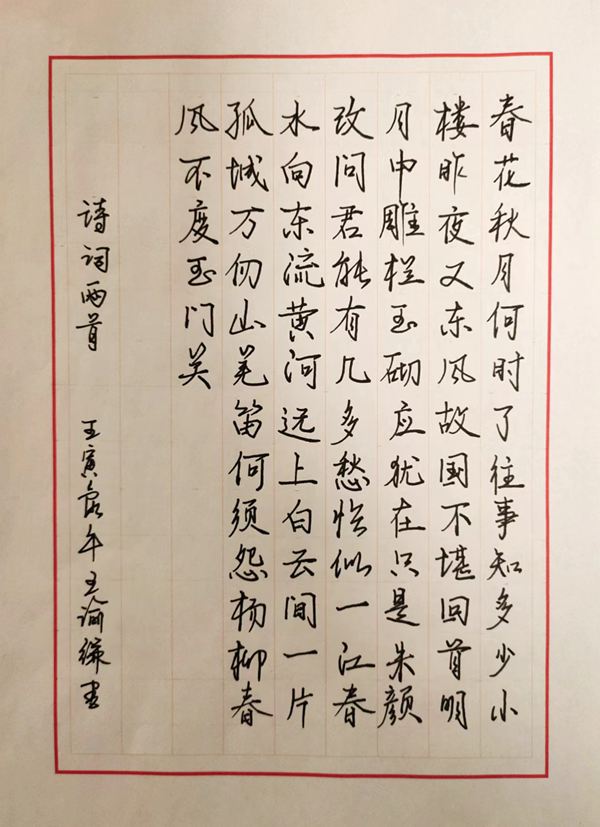 春花秋月何时了往事知多少小
楼昨夜又东风故国不堪回首明
月中雕栏玉砌应犹在只是朱颜
改问君能有几多愁恰似一江春
水向东流黄河远上白云间一片
孤城万仞山羌笛何须怨杨柳春
风不度玉门关
诗词两首 壬寅年王谕书